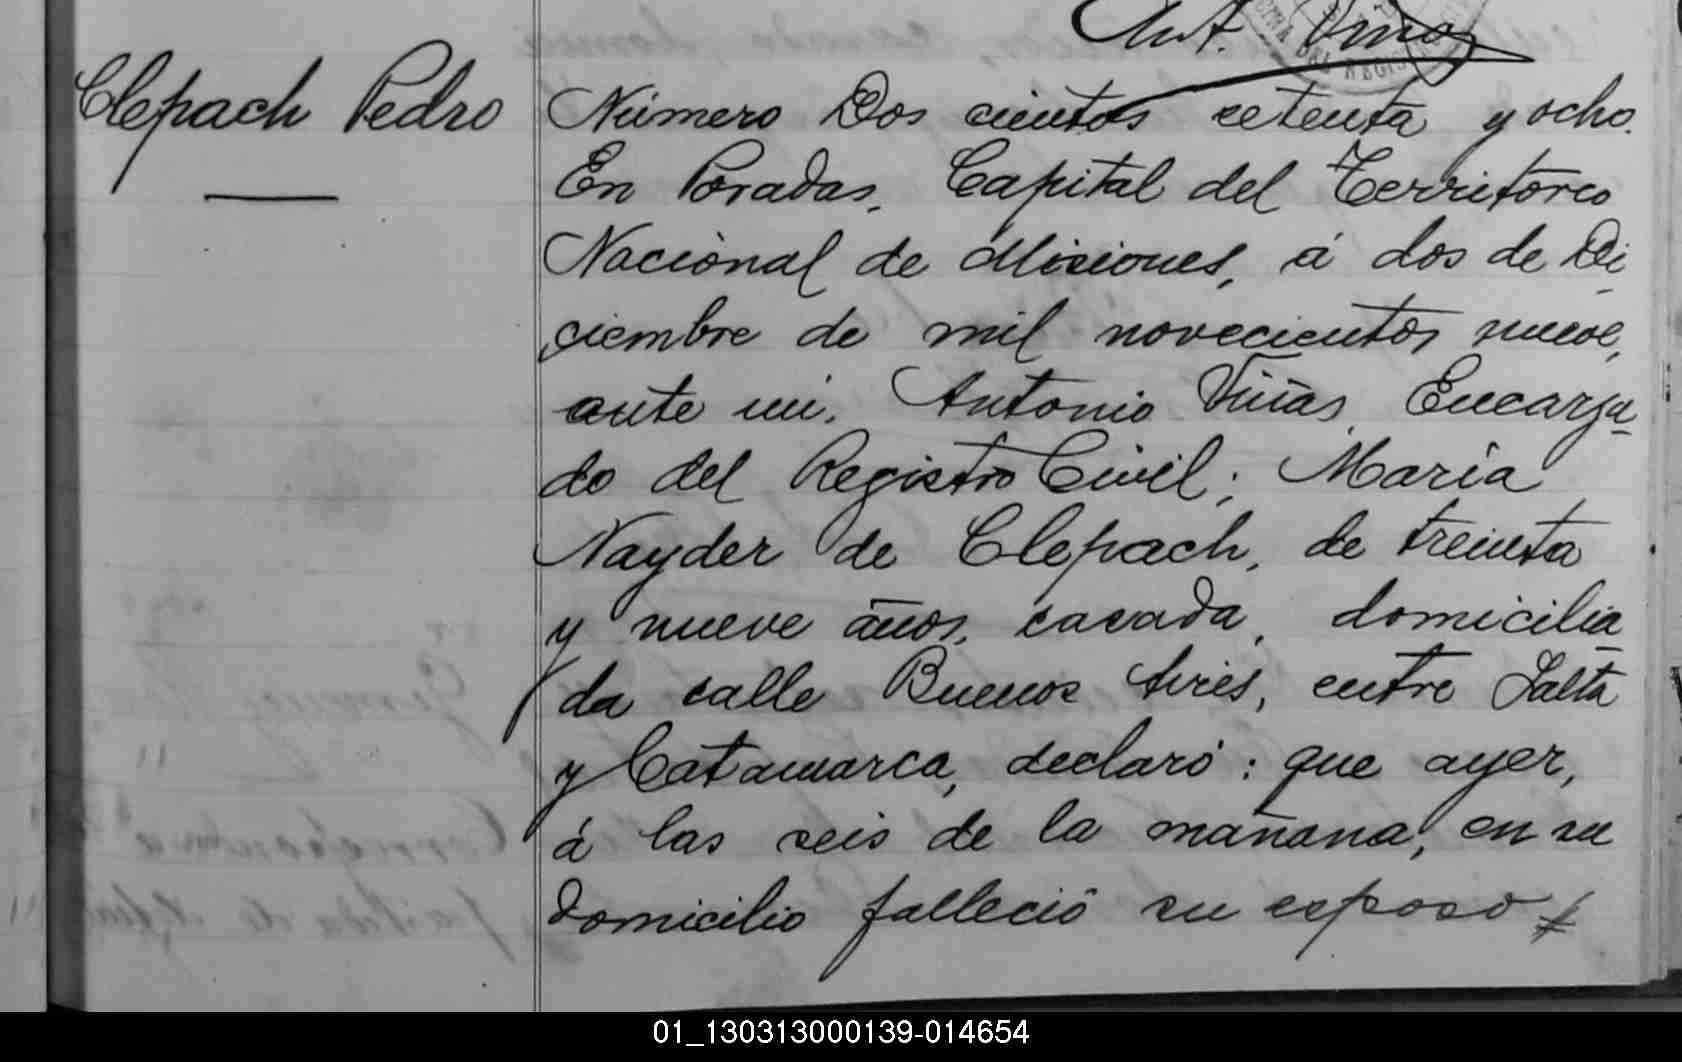 Ant. Viñas
Clepach Pedro
Número Dos cientos setenta y ocho.
En Posadas, Capital del Territorio
Nacional de Misiones, á dos de Di
ciembre de mil novecientos nueve,
ante mi, Antonio Viñas, Encarga-
do del Registro Civil; María
Nayder de Clepach, de treinta
y nueve años, casada, domicilia
da calle Buenos Aires, entre Salta
y Catamarca, declaró: que ayer,
á las seis de la mañana, en su
domicilio falleció su esposo
01_130313000139-014654